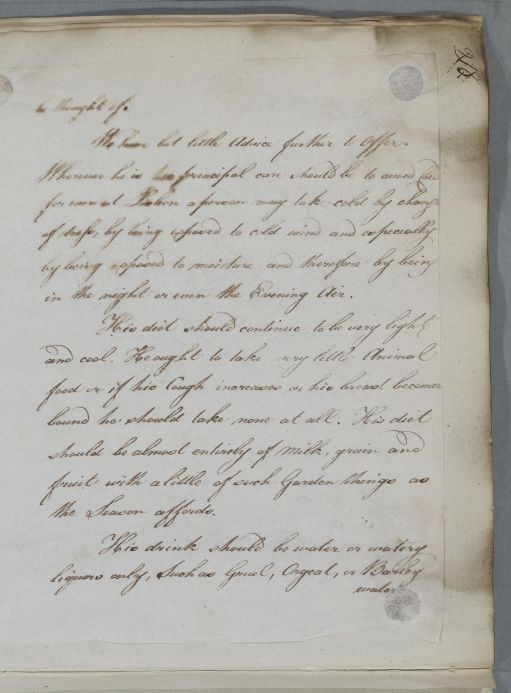 be thought of.
We have but little Advice further to offer.
Wherever he is his principal care should be to avoid cold
for even at Lisbon a person may take cold by change
of dress, by being exposed to cold wind and especially
by being exposed to moisture and therefore by being
in the night or even the Evening Air.
His diet should continue to be very light
and cool. He ought to take very little Animal
food or if his Cough increases or his breast becomes
bound he should take none at all. His diet
should be almost entirely of Milk, grain and
fruit with a little of such Garden things as
the Season affords.
His drink should be water or watery
liquors only, Such as Gruel, Orgeat, or Barley
water